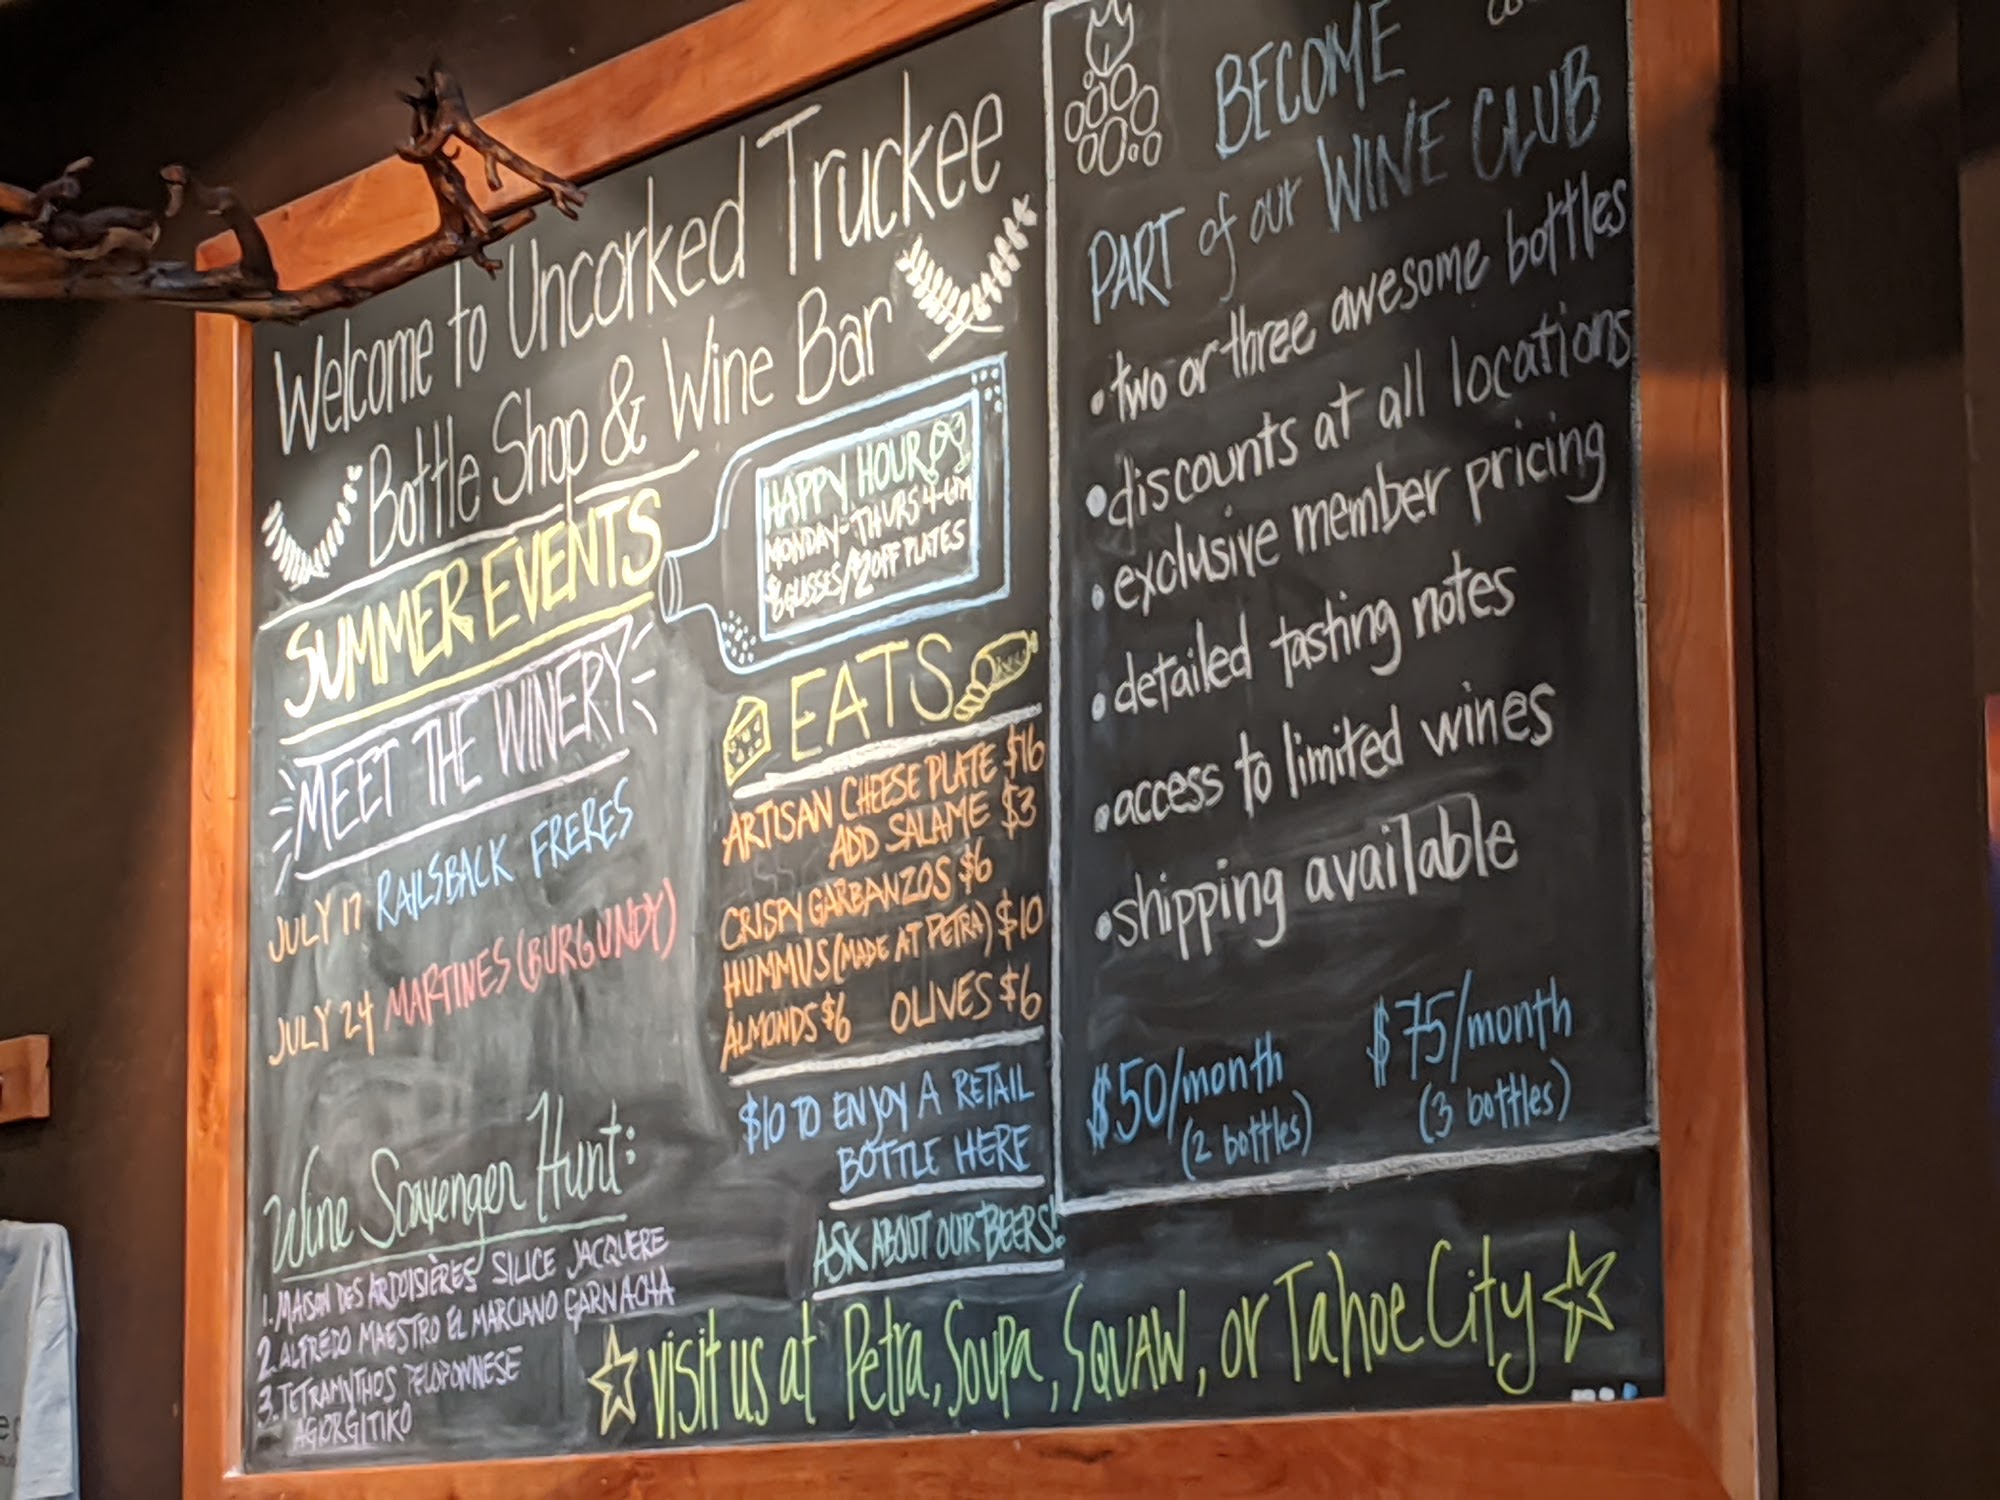 Welcome to Uncorked Truckee
Bottle Shop & Wine Bar
SUMMER EVENTS
MEET THE WINERY
JULY 17 RAILSBACK FRERES
JULY 24 MARTINES (BURGUNDY)
Wine Scavenger Hunt:
1. MAISON DES ARDOISIÈRES SILICE JACQUERE
2. ALFREDO MAESTRO EL MARCIANO GARNACHA
3. TETRAMYTHOS PELOPONNESE
AGIORGITIKO
HAPPY HOUR
MONDAY-THURS 4-6PM
$6 GLASSES/$2 OFF PLATES
EATS
ARTISAN CHEESE PLATE $16
ADD SALAME $3
CRISPY GARBANZOS $6
HUMMUS (MADE AT PETRA) $10
ALMONDS $6 OLIVES $6
$10 TO ENJOY A RETAIL
BOTTLE HERE
ASK ABOUT OUR BEERS!
BECOME
PART of our WINE CLUB
•two or three awesome bottles
•discounts at all locations
•exclusive member pricing
•detailed tasting notes
•access to limited wines
•shipping available
$50/month
(2 bottles)
$75/month
(3 bottles)
visit us at Petra, Soupa, SQUAW, or Tahoe City